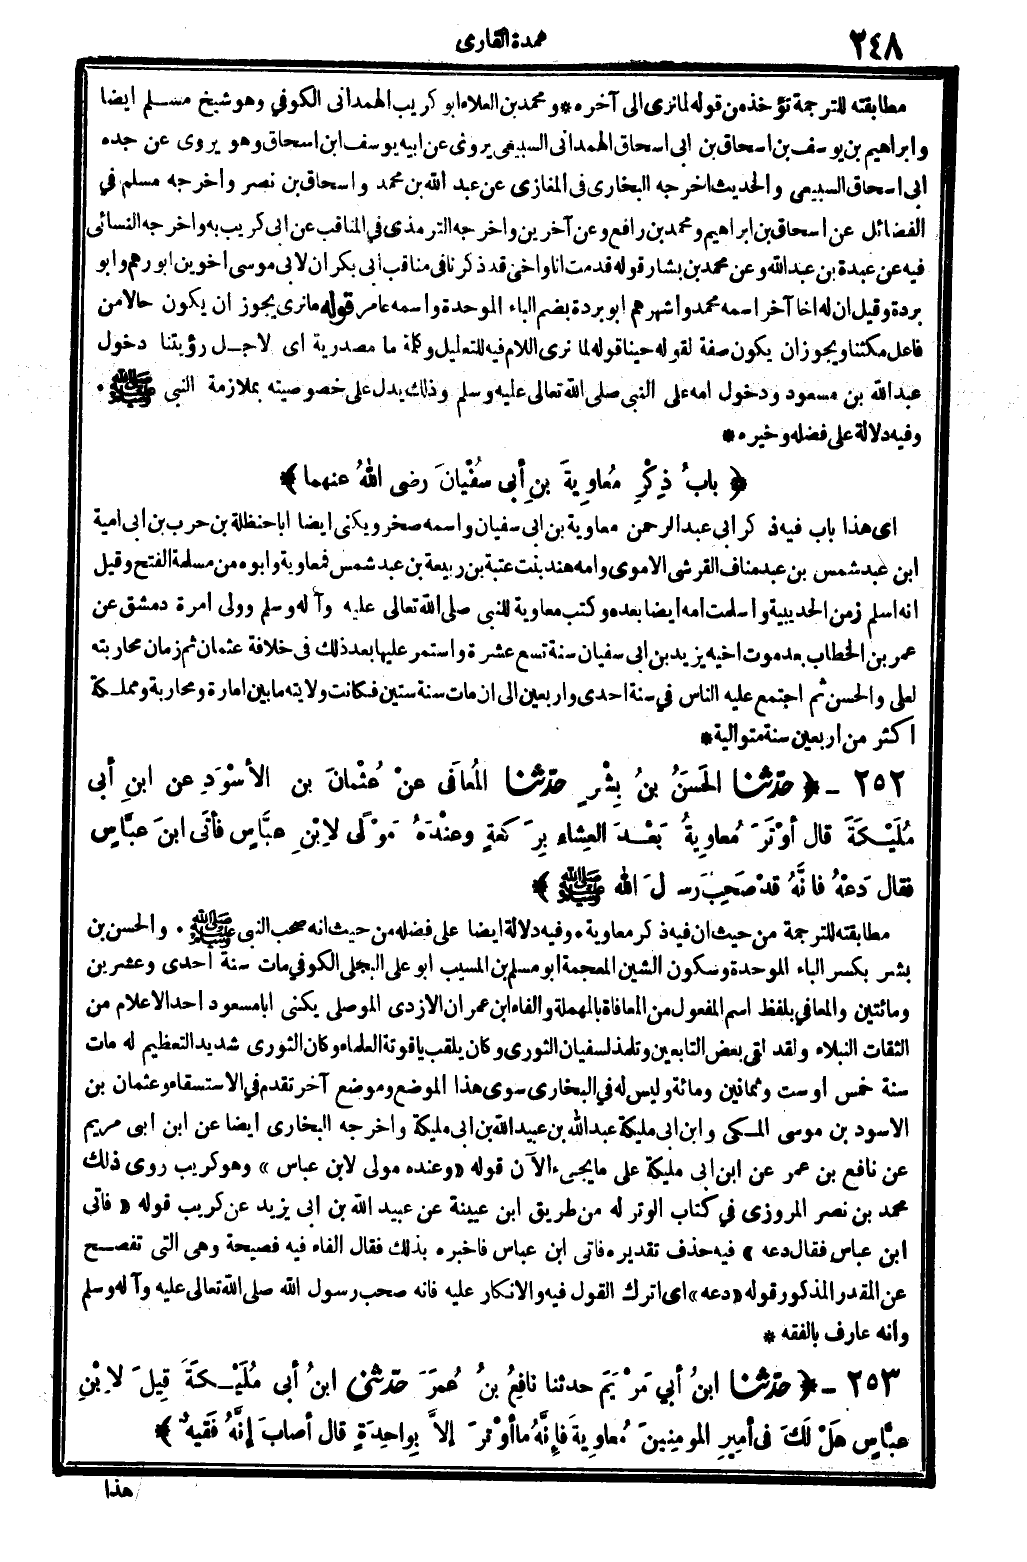 ٢٤٨
عمدة القارى
مطابقته للترجمة تؤخذ من قوله لما نرى الى آخره * و محمد بن العلاء ابو كريب الهمدانى الكوفي وهو شيخ مسلم ايضا
وابراهيم بن يوسف بن اسحاق بن ابى اسحاق الهمدانى السبيعى يروى عن ابيه يوسف ابن اسحاق وهو يروى عن جده
ابى اسحاق السبيعى والحديث اخرجه البخارى فى المغازى عن عبد الله بن محمد واسحاق بن نصر واخرجه مسلم في
الفضائل عن اسحاق بن ابراهيم و محمد بن رافع وعن آخرين واخرجه الترمذى في المناقب عن ابى كريب به واخرجه النسائى
فيه عن عبدة بن عبدالله وعن محمد بن بشار قوله قدمت انا واخى قد ذكرنا فى مناقب ابى بكر ان لابى موسى اخوين ابو رهم وابو
بردة وقيل ان له اخا آخر اسمه محمد واشهرهم ابو بردة بضم الباء الموحدة واسمه عامر قوله ما نرى يجوز ان يكون حالا من
فاعل مكثنا ويجوز ان يكون صفة لقوله حينا قوله لما نرى اللام فيه للتعليل وكلمة ما مصدرية اى لاجل رؤيتنا دخول
عبدالله بن مسعود ودخول امه على النبى صلى الله تعالى عليه وسلم وذلك يدل على خصوصيته بملازمة النبى ﷺ .
وفيه دلالة على فضله وخيره *
﴿ بابُ ذِكْرِ مُعاوِيةَ بنِ أبى سفْيانَ رضى اللهُ عنهما ﴾
اى هذا باب فيه ذكر ابى عبد الرحمن معاوية بن ابى سفيان واسمه صخر ويكنى ايضا ابا حنظلة بن حرب بن ابى امية
ابن عبد شمس بن عبد مناف القرشى الاموى وامه هند بنت عتبة بن ربيعة بن عبد شمس فمعاوية وابوه من مسلمة الفتح وقيل
انه اسلم زمن الحديبية واسلمت امه ايضا بعده وكتب معاوية للنبى صلى الله تعالى عليه وآله وسلم وولى امرة دمشق عن
عمر بن الخطاب بعد موت اخيه يزيد بن ابى سفيان سنة تسع عشرة واستمر عليها بعد ذلك فى خلافة عثمان ثم زمان محاربته
لعلى والحسن ثم اجتمع عليه الناس في سنة احدى واربعين الى ان مات سنة ستين فكانت ولايته ما بين امارة ومحاربة ومملكة
اكثر من اربعين سنة متوالية *
٢٥٢ - ﴿ حدّثنا الحَسَنُ بنُ بِشْرٍ حدّثنا المُعافَى عنْ عُثْمانَ بن الأسْوَدِ عن ابنِ أبى
مُلَيْكَةَ قال أوْتَرَ مُعاوِيةُ بَعْدَ العِشاءِ بِرَكْعَةٍ وعِنْدَهُ مَوْلَى لاِبْنِ عبَّاسٍ فأتَى ابنَ عبَّاسٍ
فقال دَعْهُ فانَّهُ قدْ صَحِبَ رسولَ الله ﷺ ﴾
مطابقته للترجمة من حيث ان فيه ذكر معاوية . وفيه دلالة ايضا على فضله من حيث انه صحب النبى ﷺ . والحسن بن
بشر بكسر الباء الموحدة وسكون الشين المعجمة ابو مسلم بن المسيب ابو على البجلى الكوفي مات سنة احدى وعشرين
ومائتين والمعافي بلفظ اسم المفعول من المعافاة بالمهملة والفاء ابن عمران الازدى الموصلى يكنى ابا مسعود احد الاعلام من
الثقات النبلاء ولقد لقى بعض التابعين وتلمذ لسفيان الثورى وكان يلقب ياقوتة العلماء وكان الثورى شديد التعظيم له مات
سنة خمس اوست وثمانين ومائة وليس له في البخارى سوى هذا الموضع وموضع آخر تقدم في الاستسقاء وعثمان بن
الاسود بن موسى المكى وابن ابى مليكة عبدالله بن عبيدالله بن ابى مليكة واخرجه البخارى ايضا عن ابن ابى مريم
عن نافع بن عمر عن ابن ابى مليكة على ما يجىء الآن قوله «وعنده مولى لابن عباس» وهو كريب روى ذلك
محمد بن نصر المروزى في كتاب الوتر له من طريق ابن عيينة عن عبيد الله بن ابى يزيد عن كريب قوله « فاتى
ابن عباس فقال دعه » فيه حذف تقديره فاتى ابن عباس فاخبره بذلك فقال الفاء فيه فصيحة وهى التى تفصح
عن المقدر المذكور قوله «دعه» اى اترك القول فيه والانكار عليه فانه صحب رسول الله صلى الله تعالى عليه وآله وسلم
وانه عارف بالفقه *
٢٥٣ - ﴿ حدّثنا ابنُ أبي مَرْيَمَ حدثنا نافِعُ بنُ عُمَرَ حدّثنى ابنُ أبى مُلَيْكَةَ قِيلَ لاِبْنِ
عبَّاسٍ هَلْ لَكَ فى أمِيرِ المومِنِينَ مُعاوِيةَ فإنَّهُ ما أوْترَ إلاَّ بِواحِدَةٍ قال أصابَ إنَّهُ فَقيهٌ ﴾
هذا